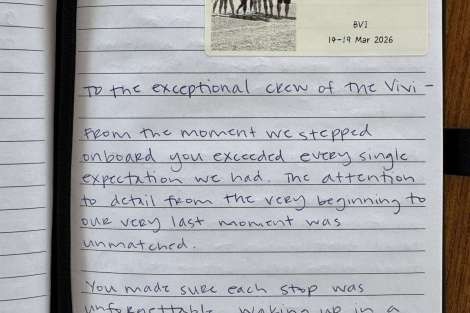 BVI
14-19 Mar 2026
To the exceptional crew of the Vivi -
From the moment we stepped
onboard you exceeded every single
expectation we had. The attention
to detail from the very beginning to
our very last moment was
unmatched.
You made sure each stop was
unforgettable. Waking up in a